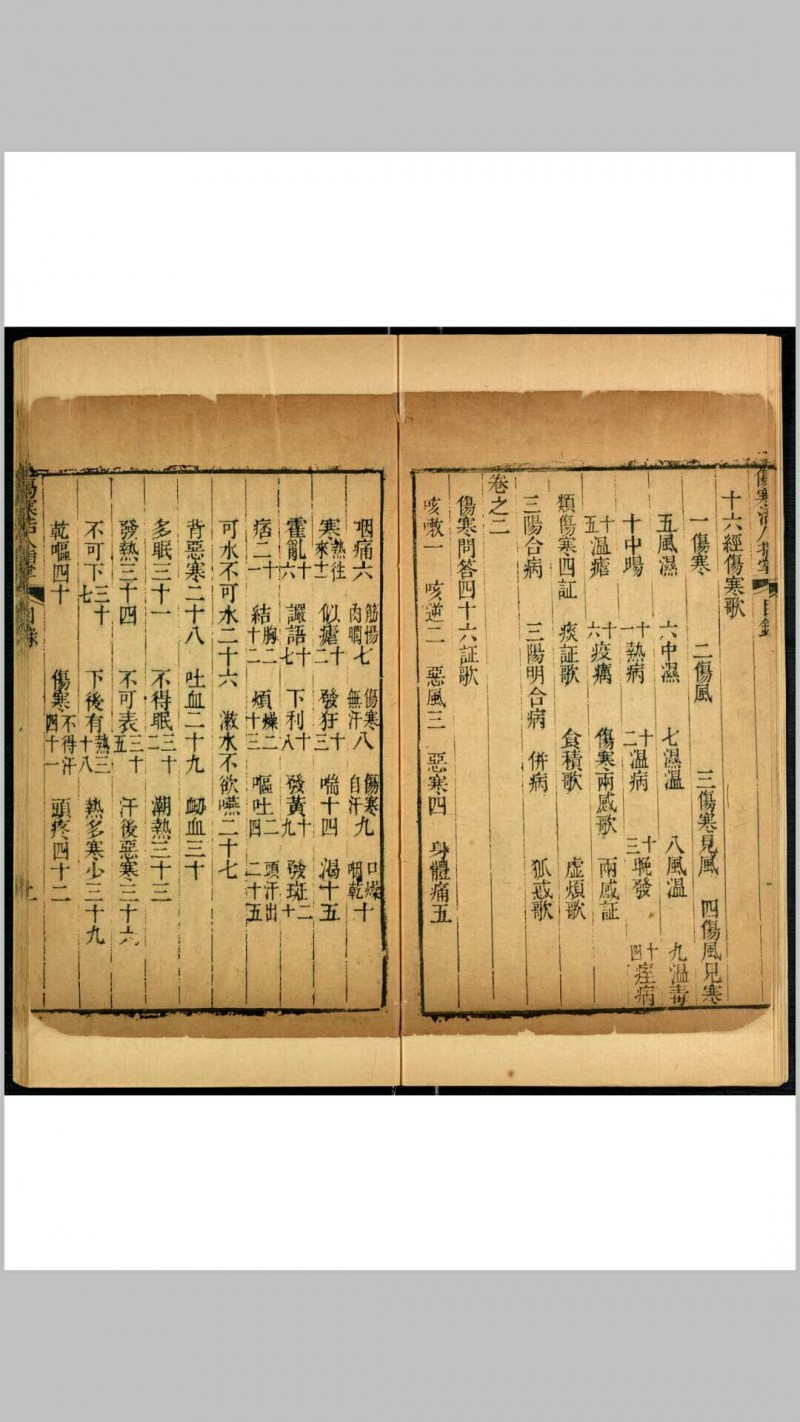 傷寒活人指掌 目錄
十六經傷寒歌
一傷寒 二傷風 三傷寒見風 四傷風見寒
五風濕 六中濕 七濕溫 八風溫 九溫毒
十中暍 十一熱病 十二溫病 十三晚發 十四痓病
十五溫瘧 十六疫癘 傷寒兩感歌 兩感証
類傷寒四証 痰証歌 食積歌 虛煩歌
三陽合病 三陽明合病 併病 狐惑歌
卷之二
傷寒問答四十六証歌
咳嗽一 咳逆二 惡風三 惡寒四 身體痛五
咽痛六 筋惕肉瞤七 傷寒無汗八 傷寒自汗九 口燥咽乾十
寒熱往來十一 似瘧十二 發狂十三 喘十四 渴十五
霍亂十六 讝語十七 下利十八 發黃十九 發斑二十
痞二十一 結胸二十二 煩燥二十三 嘔吐二十四 頭汗出二十五
可水不可水二十六 漱水不欲嚥二十七
背惡寒二十八 吐血二十九 衂血三十
多眠三十一 不得眠三十二 潮熱三十三
發熱三十四 不可表三十五 汗後惡寒三十六
不可下三十七 下後有熱三十八 熱多寒少三十九
乾嘔四十 傷寒不得汗四十一 頭疼四十二